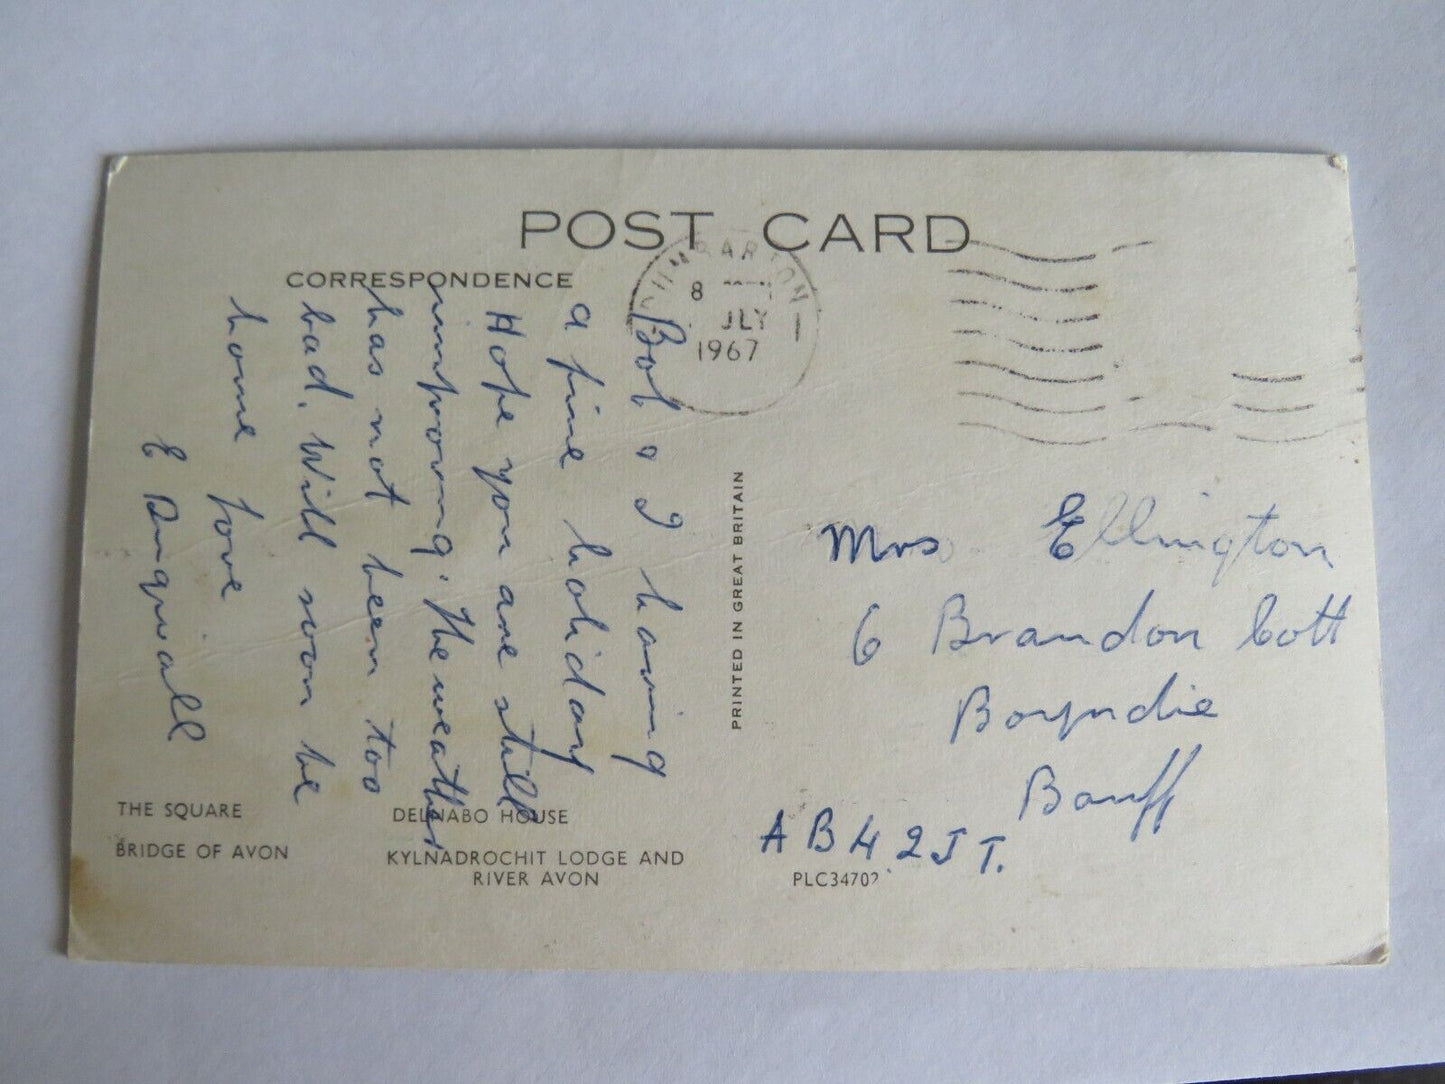 POST CARD
CORRESPONDENCE
DUMBARTON
8
JLY
1967
Bob & I having
a fine holiday
Hope you are still
improving. The weather
has not been too
bad. Will soon be
home love
E Dingwall
PRINTED IN GREAT BRITAIN
Mrs Ellington
6 Brandon Cott
Boyndie
Banff
AB4 2JT.
THE SQUARE
DELNABO HOUSE
BRIDGE OF AVON
KYLNADROCHIT LODGE AND
RIVER AVON
PLC34702